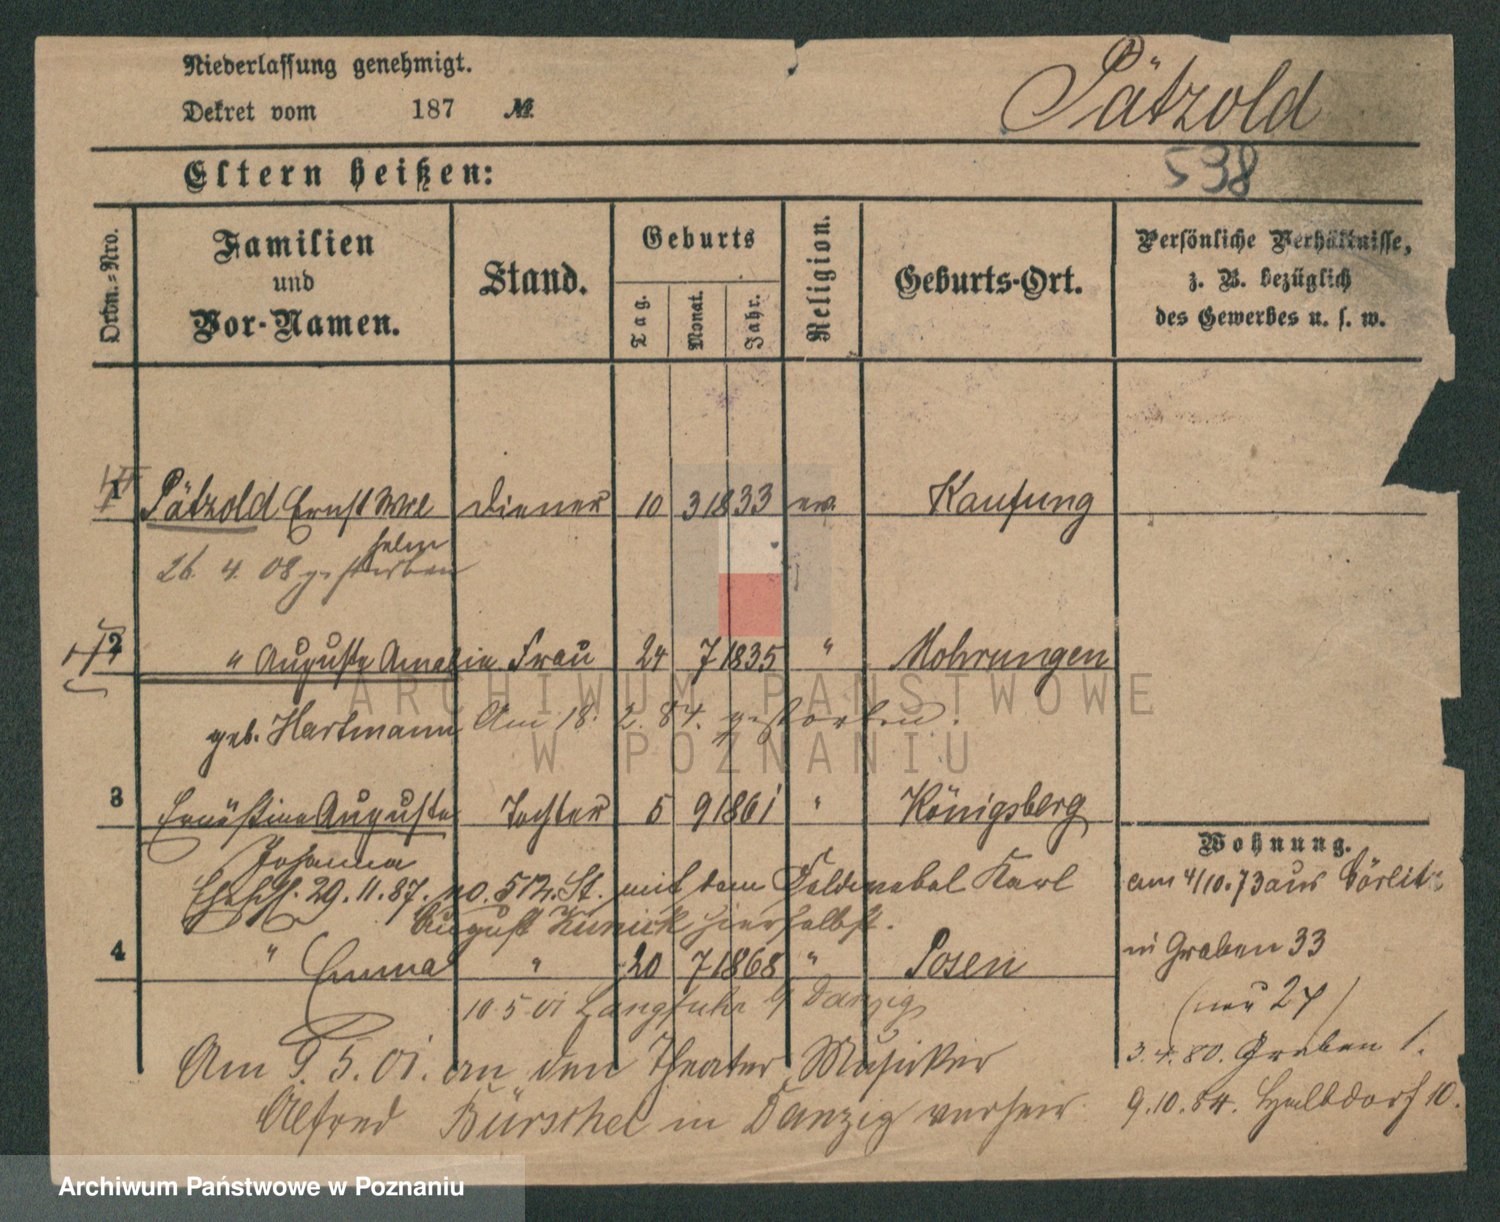 Niederlassung genehmigt.
Dekret vom 187 №
Pätzold
Eltern heißen:
538
Ordn.-Nro.
Familien und Vor-Namen.
Stand.
Geburts
Tag.
Monat.
Jahr.
Religion.
Geburts-Ort.
Persönliche Verhältnisse,
z. B. bezüglich
des Gewerbes u. s. w.
1 Pätzold Ernst Wil Diener 10 3 1833 ev. Kaufung
helm
26. 4. 08 gestorben
2 " Auguste Amalie Frau 24 7 1835 " Mohrungen
geb. Hartmann Am 18. 2. 84. gestorben.
3 Ernestine Auguste Tochter 5 9 1861 " Königsberg
Johanna
Wohnung.
Ehesch. 29. 11. 87. no. 512. St. mit dem Feldwebel Karl
am 4/10.73 aus Görlitz
August Kunick hierselbst.
4 " Emma " 20 7 1868 " Posen
in Graben 33
10.5.01 Langfuhr b/ Danzig
(neu 27)
Am 9. 5. 01. an den Theater Musiker
3.4.80. Graben 1.
Alfred Bürschel in Danzig verheir.
9.10.84. Halbdorf 10.
ARCHIWUM PAŃSTWOWE
W POZNANIU
Archiwum Państwowe w Poznaniu